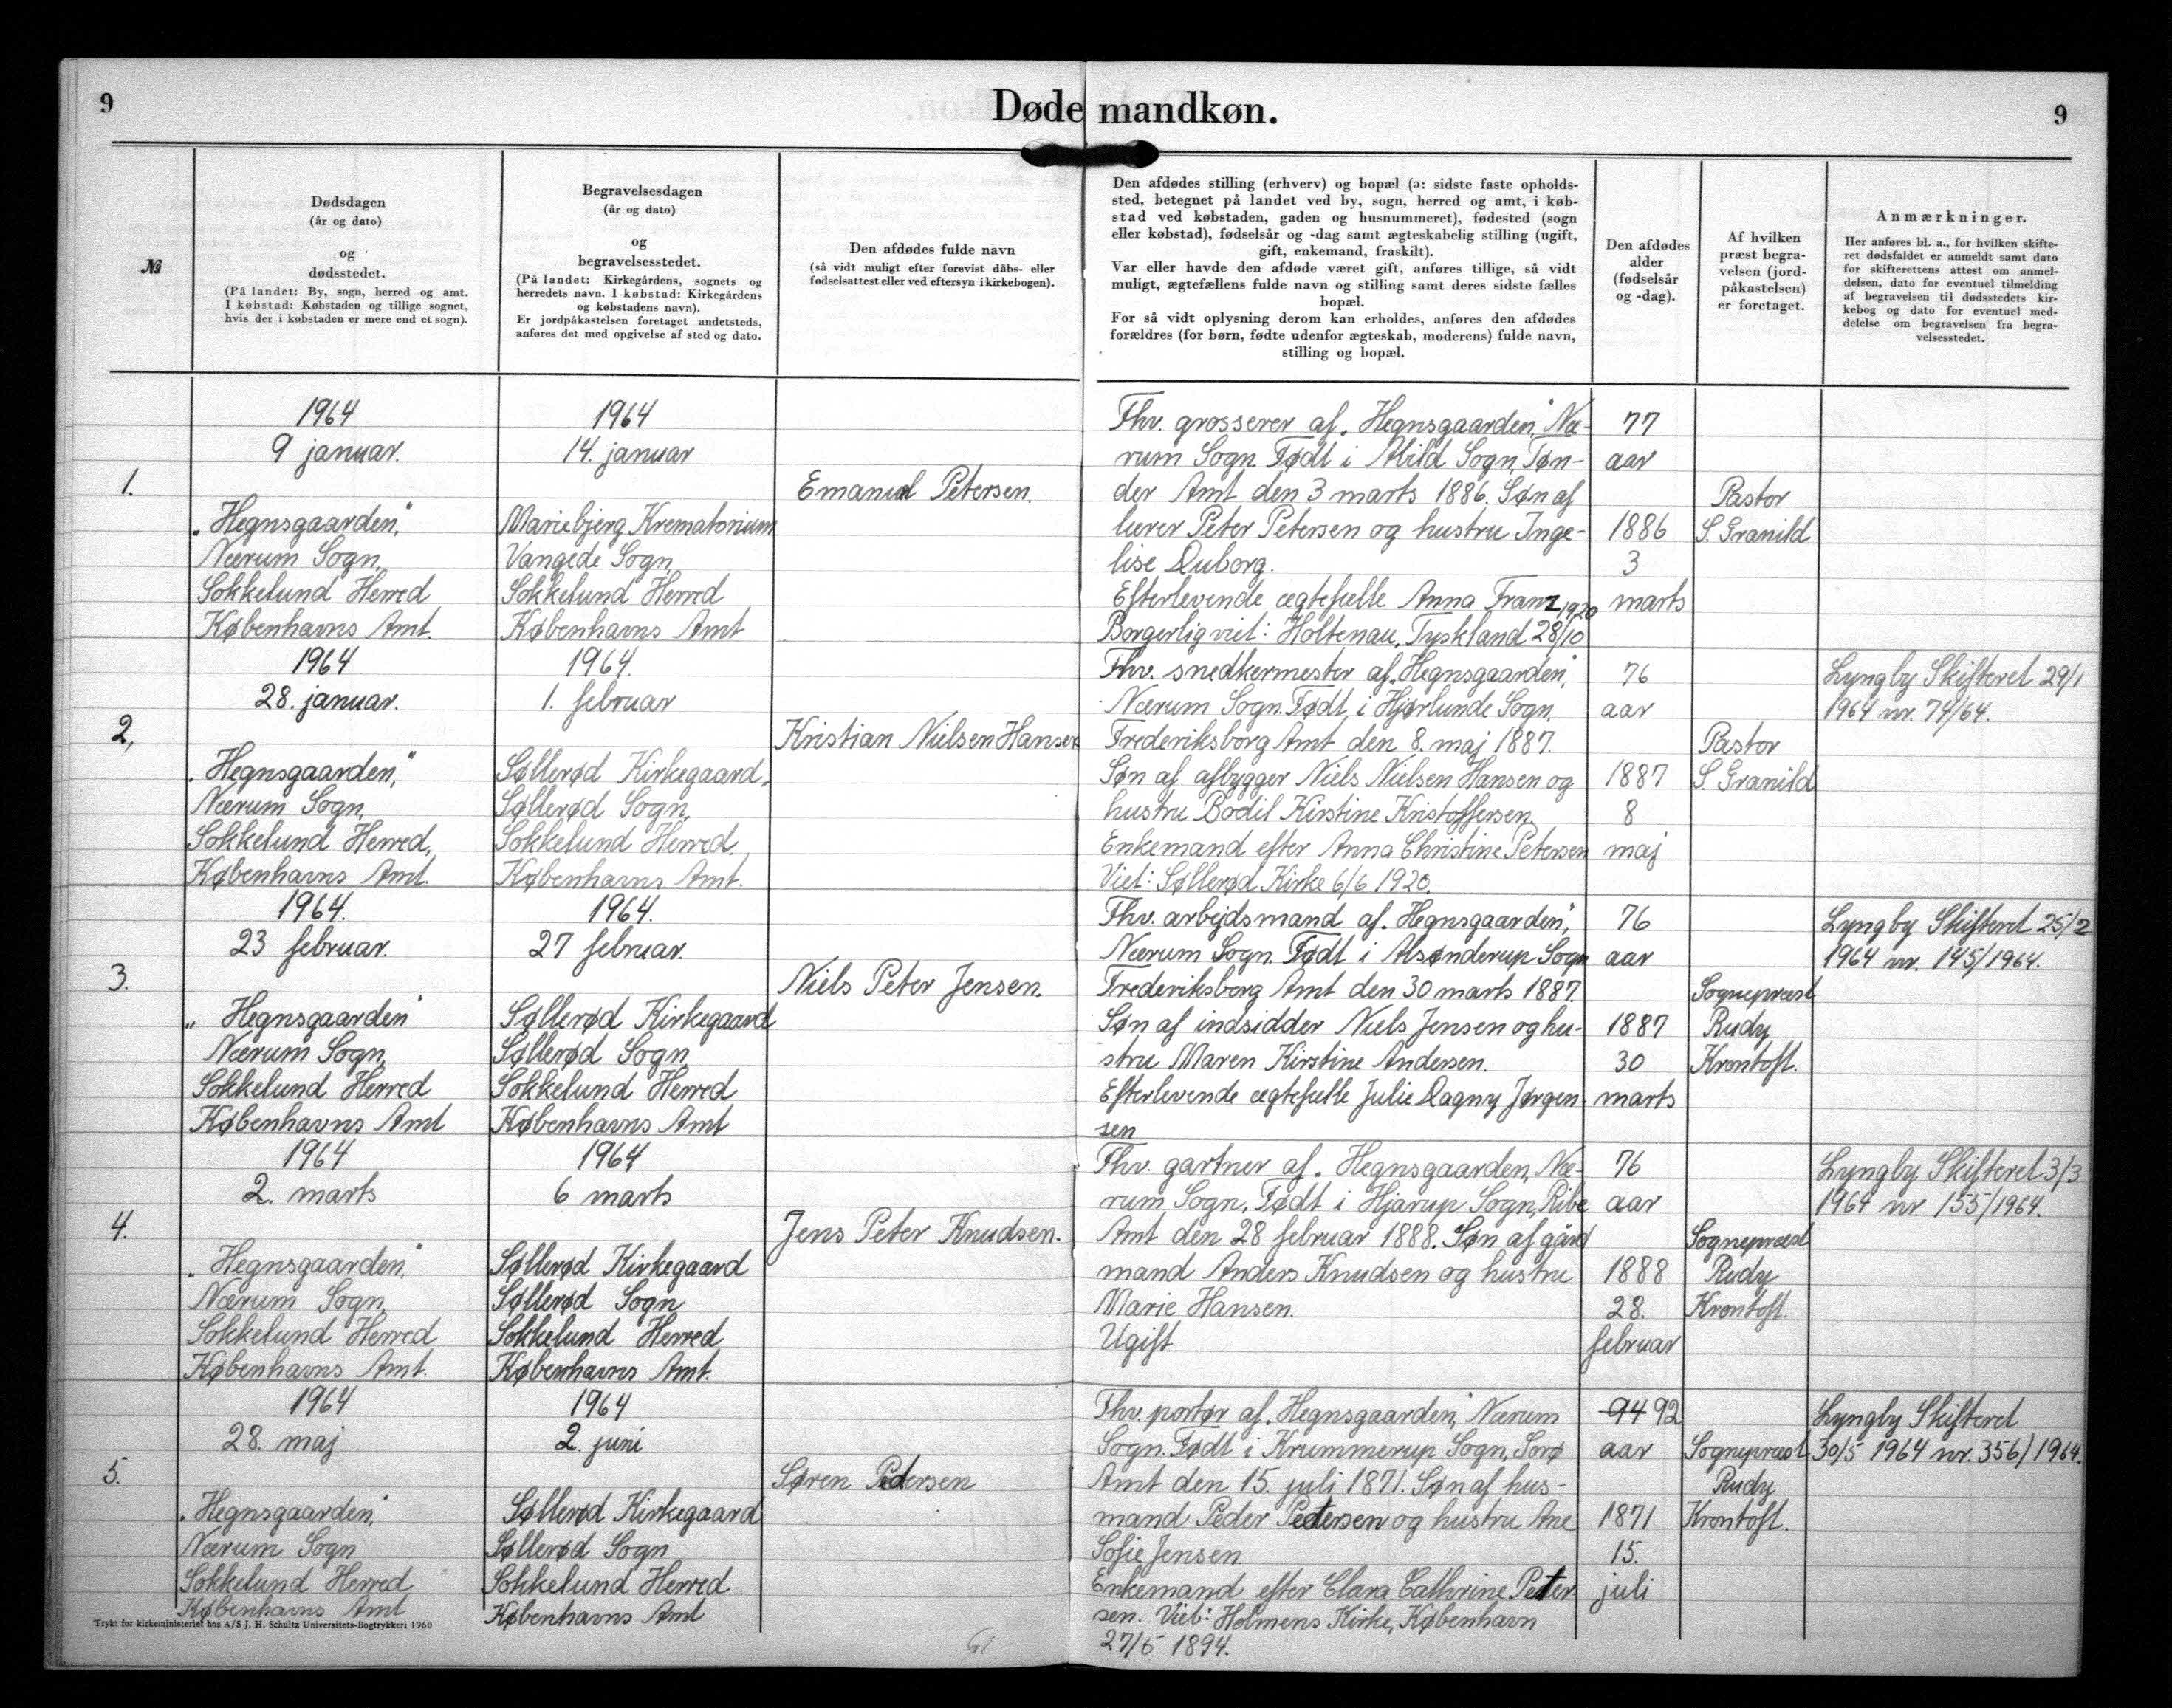 9
Døde mandkøn.
9
№
Dødsdagen
(år og dato)
og
dødsstedet.
(På landet: By, sogn, herred og amt.
I købstad: Købstaden og tillige sognet,
hvis der i købstaden er mere end et sogn).
Begravelsesdagen
(år og dato)
og
begravelsesstedet.
(På landet: Kirkegårdens, sognets og
herredets navn. I købstad: Kirkegårdens
og købstadens navn).
Er jordpåkastelsen foretaget andetsteds,
anføres det med opgivelse af sted og dato.
Den afdødes fulde navn
(så vidt muligt efter forevist dåbs- eller
fødselsattest eller ved eftersyn i kirkebogen).
Den afdødes stilling (erhverv) og bopæl (ɔ: sidste faste opholds-
sted, betegnet på landet ved by, sogn, herred og amt, i køb-
stad ved købstaden, gaden og husnummeret), fødested (sogn
eller købstad), fødselsår og -dag samt ægteskabelig stilling (ugift,
gift, enkemand, fraskilt).
Var eller havde den afdøde været gift, anføres tillige, så vidt
muligt, ægtefællens fulde navn og stilling samt deres sidste fælles
bopæl.
For så vidt oplysning derom kan erholdes, anføres den afdødes
forældres (for børn, fødte udenfor ægteskab, moderens) fulde navn,
stilling og bopæl.
Den afdødes
alder
(fødselsår
og -dag).
Af hvilken
præst begra-
velsen (jord-
påkastelsen)
er foretaget.
Anmærkninger.
Her anføres bl. a., for hvilken skifte-
ret dødsfaldet er anmeldt samt dato
for skifterettens attest om anmel-
delsen, dato for eventuel tilmelding
af begravelsen til dødsstedets kir-
kebog og dato for eventuel med-
delelse om begravelsen fra begra-
velsesstedet.
1.
1964
9 januar.
„Hegnsgaarden,"
Nærum Sogn,
Sokkelund Herred
Københavns Amt.
1964
14. januar
Mariebjerg Krematorium
Vangede Sogn,
Sokkelund Herred
Københavns Amt
Emanuel Petersen.
Fhv. grosserer af „Hegnsgaarden," Næ-
rum Sogn. Født i Abild Sogn, Tøn-
der Amt den 3 marts 1886. Søn af
lærer Peter Petersen og hustru Inge-
lise Duborg.
Efterlevende ægtefælle Anna Franz, 1920
Borgerlig viet: Holtenau, Tyskland 28/10
77
aar
1886
3
marts
Pastor
S. Granild
2,
1964
28. januar.
„Hegnsgaarden,"
Nærum Sogn,
Sokkelund Herred,
Københavns Amt.
1964.
1. februar
Søllerød Kirkegaard,
Søllerød Sogn,
Sokkelund Herred.
Københavns Amt.
Kristian Nielsen Hansen
Fhv. snedkermester af „Hegnsgaarden,"
Nærum Sogn. Født i Hjørlunde Sogn,
Frederiksborg Amt den 8. maj 1887.
Søn af aftbygger Niels Nielsen Hansen og
hustru Bodil Kirstine Kristoffersen.
Enkemand efter Anna Christine Petersen
Viet: Søllerød Kirke 6/6 1920.
76
aar
1887
8
maj
Pastor
S. Granild
Lyngby Skifteret 29/1
1964 nr. 74/64.
3.
1964.
23 februar.
„Hegnsgaarden"
Nærum Sogn,
Sokkelund Herred
Københavns Amt
1964.
27 februar.
Søllerød Kirkegaard
Søllerød Sogn
Sokkelund Herred
Københavns Amt
Niels Peter Jensen.
Fhv. arbejdsmand af „Hegnsgaarden,"
Nærum Sogn. Født i Alsønderup Sogn
Frederiksborg Amt den 30 marts 1887.
Søn af indsidder Niels Jensen og hu-
stru Maren Kirstine Andersen.
Efterlevende ægtefælle Julie Dagny Jørgen-
sen
76
aar
1887
30
marts
Sognepræst
Rudy
Krontoft.
Lyngby Skifteret 25/2
1964 nr. 145/1964.
4.
1964
2. marts
„Hegnsgaarden,"
Nærum Sogn,
Sokkelund Herred
Københavns Amt.
1964
6 marts
Søllerød Kirkegaard
Søllerød Sogn
Sokkelund Herred
Københavns Amt.
Jens Peter Knudsen.
Fhv. gartner af „Hegnsgaarden, Næ-
rum Sogn. Født i Hjarup Sogn, Ribe
Amt den 28 februar 1888. Søn af gård
mand Anders Knudsen og hustru
Marie Hansen.
Ugift
76
aar
1888
28.
februar
Sognepræst
Rudy
Krontoft.
Lyngby Skifteret 3/3
1964 nr 155/1964.
5.
1964
28. maj
„Hegnsgaarden,"
Nærum Sogn
Sokkelund Herred
Københavns Amt
1964
2. juni
Søllerød Kirkegaard
Søllerød Sogn
Sokkelund Herred
Københavns Amt
Søren Pedersen
Fhv. portør af „Hegnsgaarden," Nærum
Sogn. Født i Krummerup Sogn, Sorø
Amt den 15. juli 1871. Søn af hus-
mand Peder Petersen og hustru Ane
Sofie Jensen.
Enkemand efter Clara Cathrine Peter-
sen. Viet: Holmens Kirke, København
27/5 1894.
94 92
aar
1871
15.
juli
Sognepræst
Rudy
Krontoft.
Lyngby Skifteret
30/5 1964 nr. 356/1964.
Trykt for kirkeministeriet hos A/S J. H. Schultz Universitets-Bogtrykkeri 1960